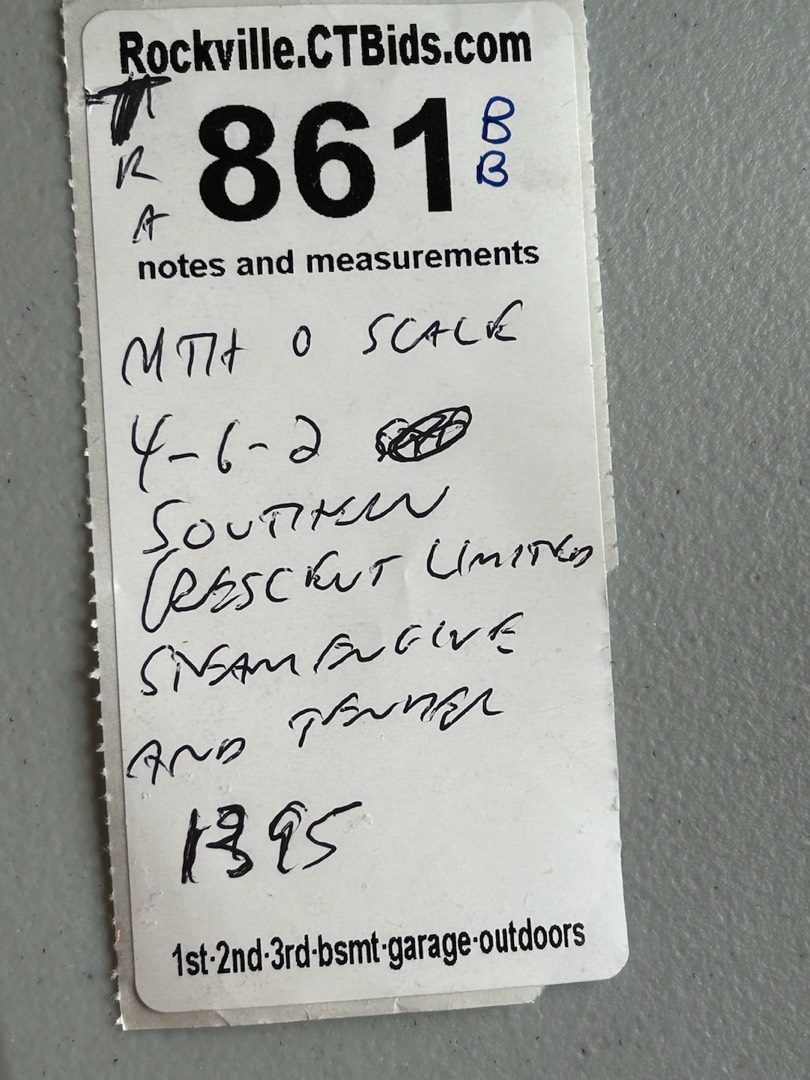 Rockville.CTBids.com
861
B
B
T
R
A
notes and measurements
MTH O SCALE
4-6-2
SOUTHERN
CRESCENT LIMITED
STEAM ENGINE
AND TENDER
1395
1st-2nd-3rd-bsmt-garage-outdoors